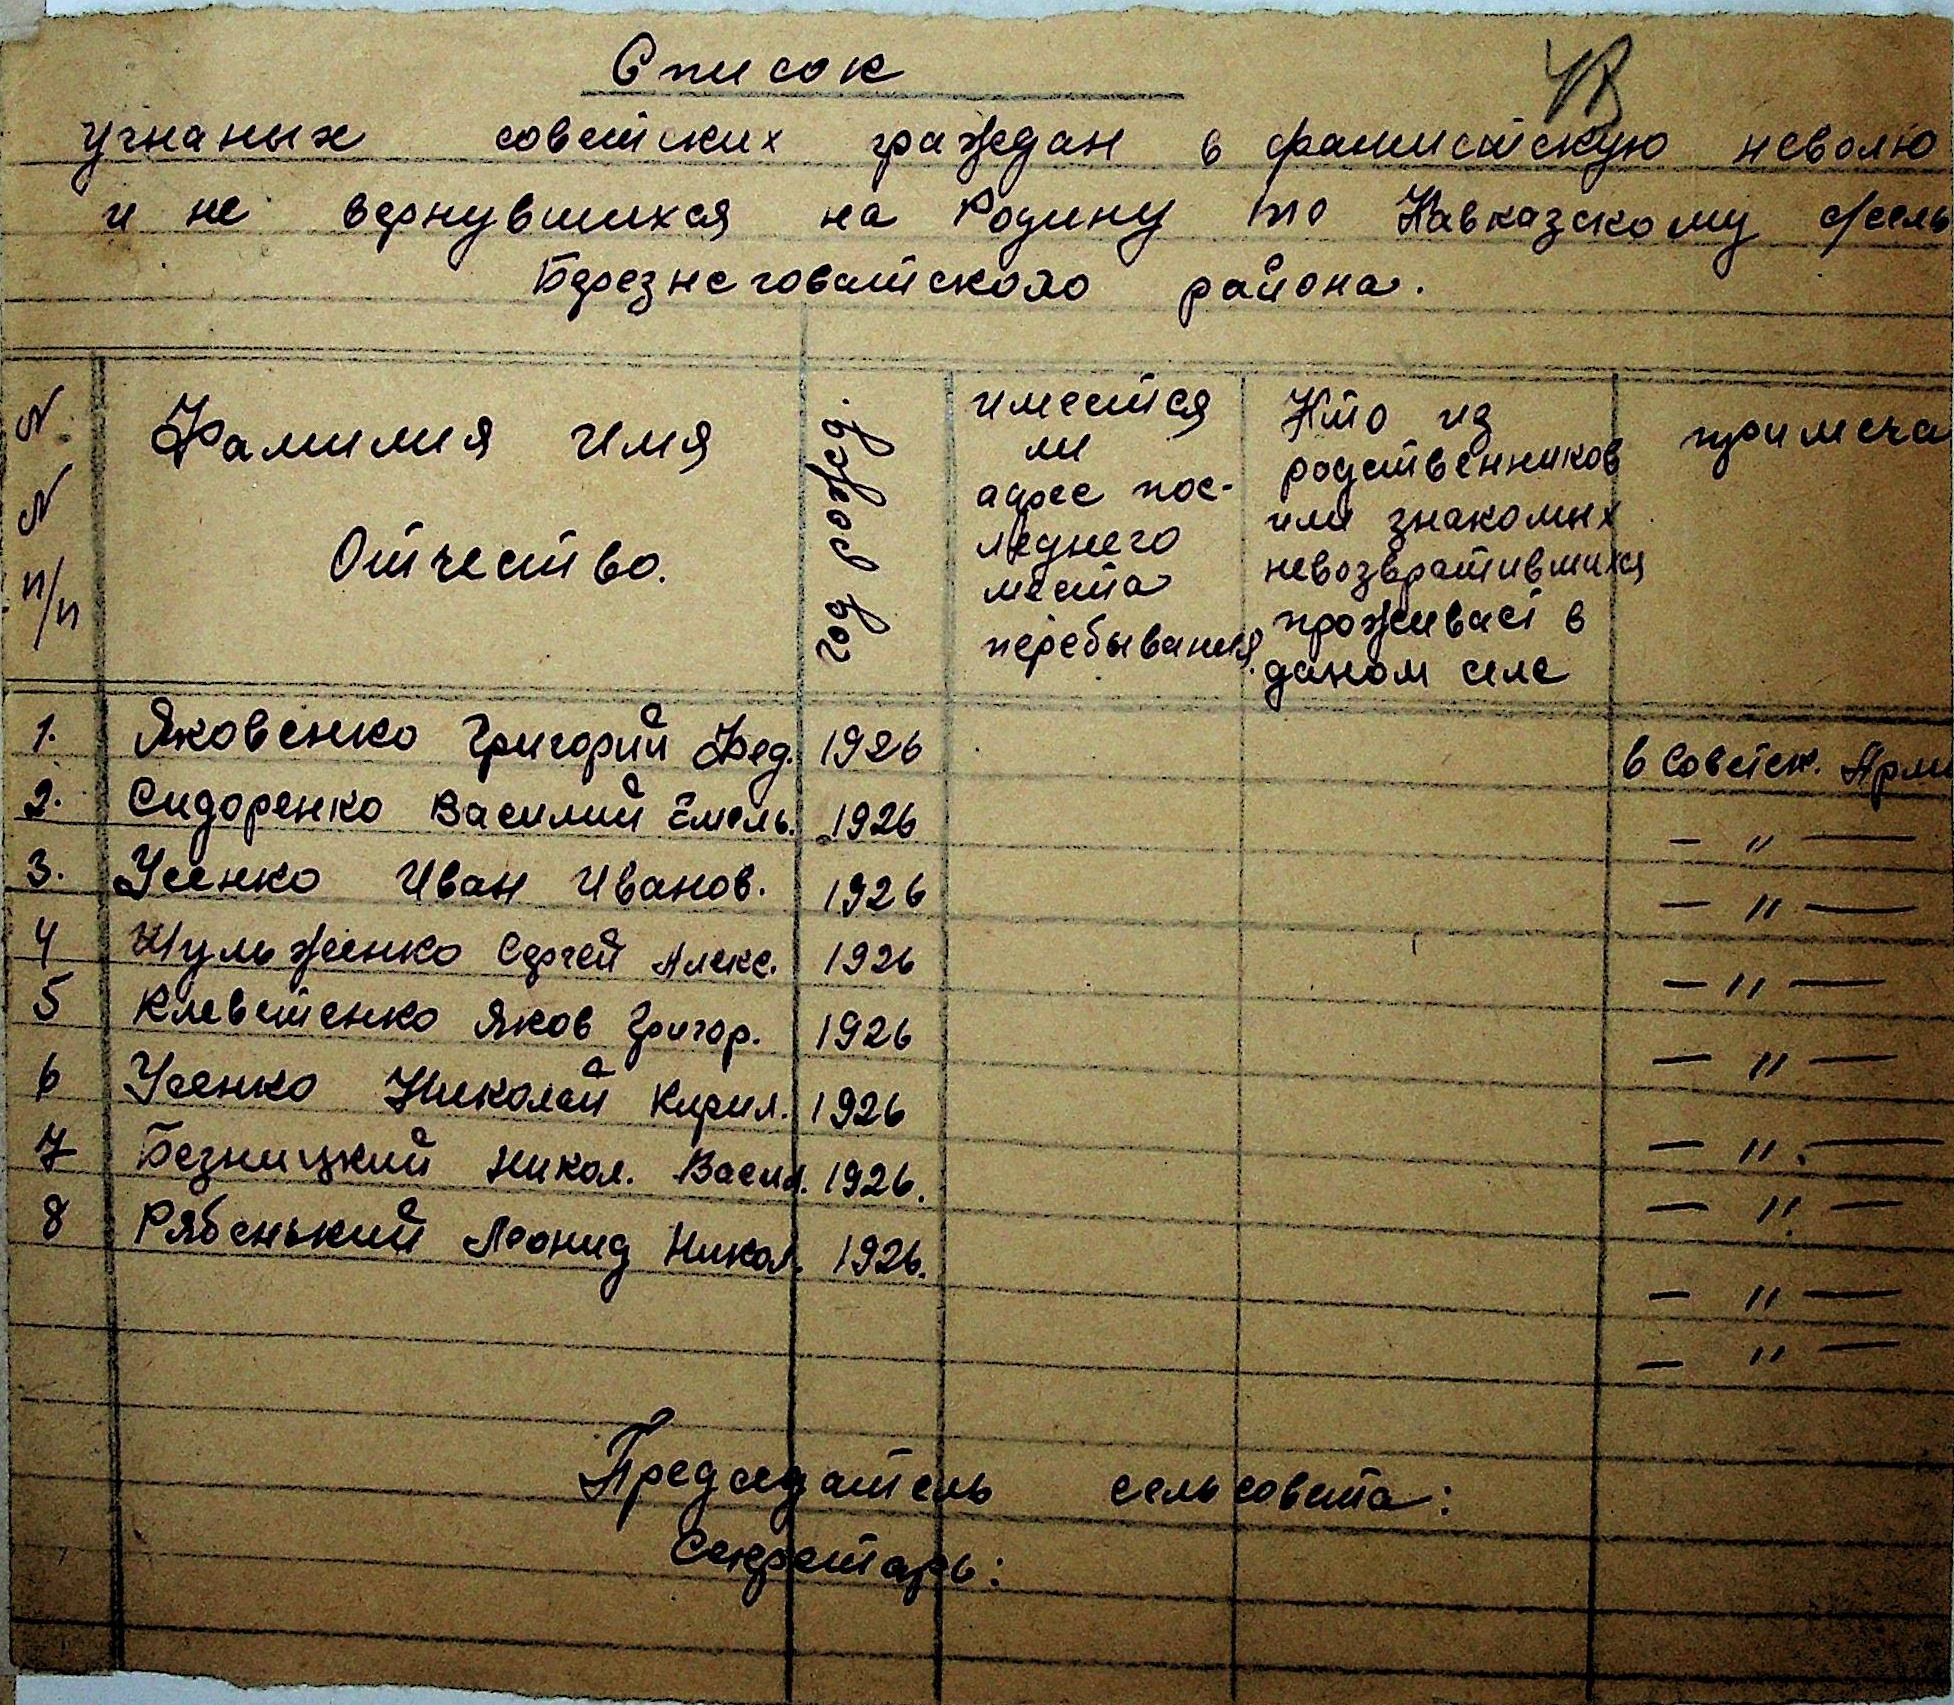 Список
угнаных советских граждан в фашистскую неволю
и не вернувшихся на Родину по Кавказскому с/сель
Березнеговатского района.
N N п/п
Фамилия имя Отчество.
год рожд.
имеется
ли
адрес пос-
леднего
места
перебывания
Кто из
родственников
или знакомых
невозвратившихся
проживает в
даном селе
примеча
1. Яковенко Григорий Фед. 1926 в Советск. Арми
2. Сидоренко Василий Емель. 1926 — " —
3. Усенко Иван Иванов. 1926 — " —
4 Шульженко Сергей Алекс. 1926 — " —
5 Клеветенко Яков Григор. 1926 — " —
6 Усенко Николай Кирил. 1926 — " —
7 Безницкий Никол. Васил. 1926. — " —
8 Рябенький Леонид Никол. 1926. — " —
— " —
Председатель сельсовета:
Секретарь: